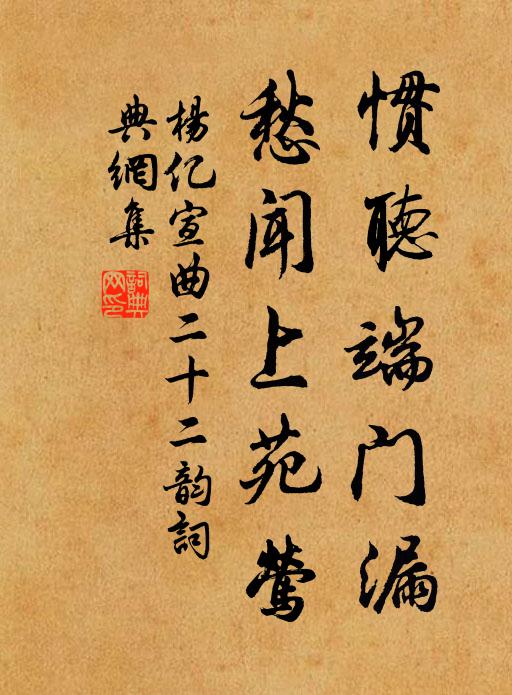 惯聴端门漏
愁闻上苑莺
楊亿宣曲二十二韵詞
典網集
詞典网印